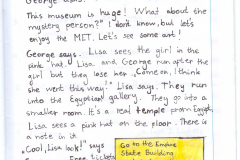 George asks.
This museum is huge! What about the
mystery person?" "I don't know, but let's
enjoy the MET. Let's see some art!
George says. Lisa sees the girl in the
pink hat. Lisa and George run after the
girl but they lose her. „Come on, I think
she went this way!" Lisa says. They run
into the Egyptian gallery. They go into a
smaller room. It's a real temple from Egypt.
Lisa sees a pink hat on the floor. There is
a note in it
„Cool, Lisa look!" says
Free tickets
Go to the Empire
State Building